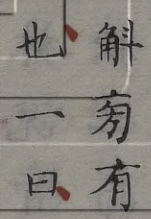 斛旁有
也一曰